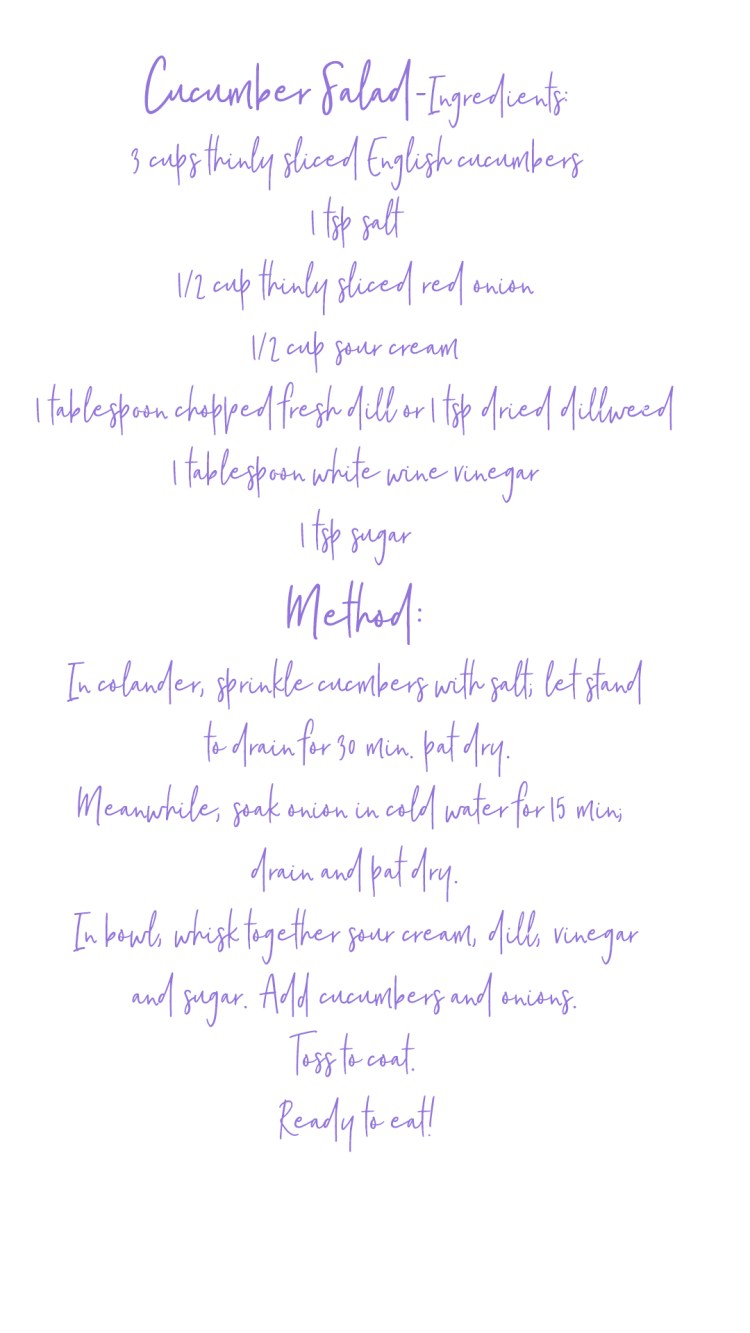 Cucumber Salad-Ingredients:
3 cups thinly sliced English cucumbers
1 tsp salt
1/2 cup thinly sliced red onion
1/2 cup sour cream
1 tablespoon chopped fresh dill or 1 tsp dried dillweed
1 tablespoon white wine vinegar
1 tsp sugar
Method:
In colander, sprinkle cucmbers with salt; let stand
to drain for 30 min. pat dry.
Meanwhile, soak onion in cold water for 15 min;
drain and pat dry.
In bowl, whisk together sour cream, dill, vinegar
and sugar. Add cucumbers and onions.
Toss to coat.
Ready to eat!